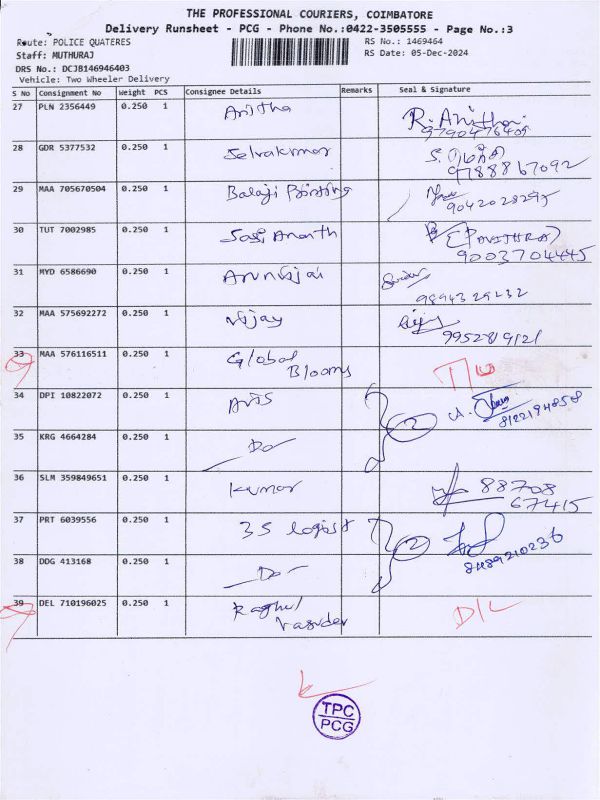 THE PROFESSIONAL COURIERS, COIMBATORE
Delivery Runsheet - PCG - Phone No.:0422-3505555 - Page No.:3
Route: POLICE QUATERES
RS No.: 1469464
Staff: MUTHURAJ
RS Date: 05-Dec-2024
DRS No.: DCJB146946403
Vehicle: Two Wheeler Delivery
S No Consignment No Weight PCS Consignee Details Remarks Seal & Signature
27 PLN 2356449 0.250 1 Anitha R. Anitha
9790476409
28 GDR 5377532 0.250 1 Selvakumar
9788867092
29 MAA 705670504 0.250 1 Balaji Printing
9042028295
30 TUT 7002985 0.250 1 Sasi Ananth (PAVITHRA)
9003704445
31 MYD 6586690 0.250 1 Arunvijai
9894329232
32 MAA 575692272 0.250 1 Vijay
9952819121
33 MAA 576116511 0.250 1 Global
Blooms
34 DPI 10822072 0.250 1 2
8122194858
35 KRG 4664284 0.250 1 Do
36 SLM 359849651 0.250 1 Kumar 88708
67415
37 PRT 6039556 0.250 1 3S logist 2
8489210236
38 DDG 413168 0.250 1 Do
39 DEL 710196025 0.250 1 Raghul D/L
Vasudev
TPC
PCG